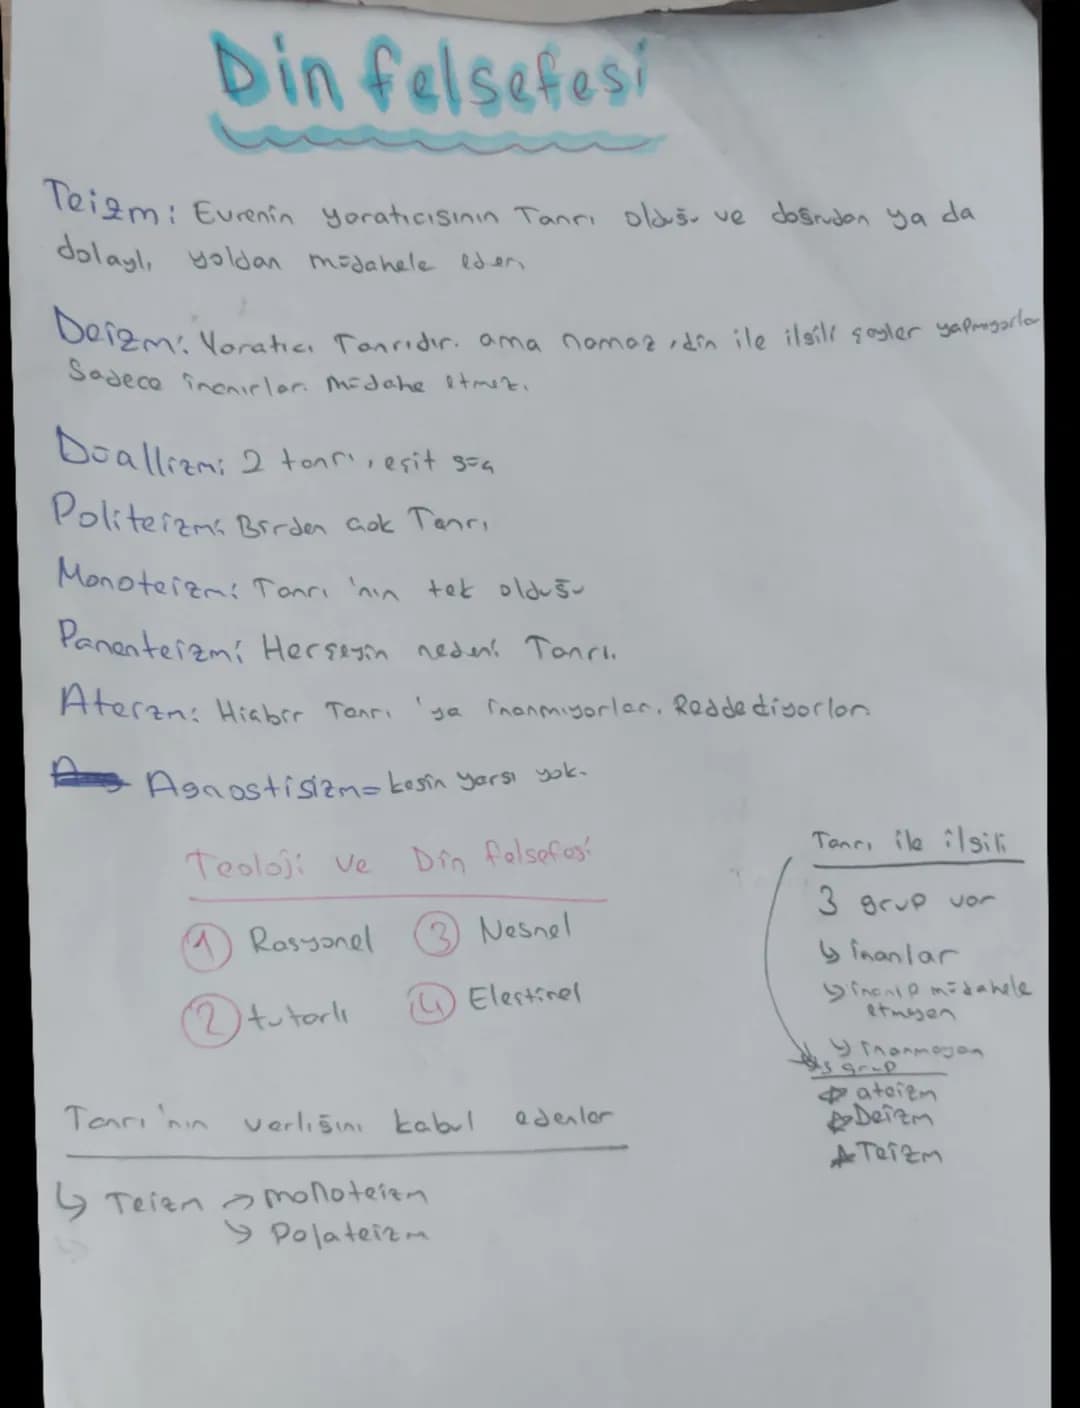 Din felsefesi
Teizm: Evrenin yaratıcısının Tanrı olduğu ve doğrudan ya da
dolaylı yoldan müdahele eder.
Deizm: Yaratıcı Tanrıdır. ama namaz, din ile ilgili şeyler yapmıyorlar
Sadece inanırlar. müdahe etmez.
Düallizm: 2 tanrı, eşit güç
Politeizm: Birden çok Tanrı
Monoteizm: Tanrı 'nın tek olduğu
Panenteizm: Herşeyin nedeni Tanrı.
Ateizm: Hiçbir Tanrı 'ya inanmıyorlar. Reddediyorlar.
Agnostisizm= kesin yargı yok.
Teoloji ve Din felsefesi
1 Rasyonel 3 Nesnel
2 tutarlı 4 Eleştirel
Tanrı'nın varlığını kabul edenler
↳ Teizm → monoteizm
↳ Polateizm
Tanrı ile ilgili
3 grup var
↳ inanlar
↳ inanıp müdahele
etmeyen
↳ inanmayan
3 grup
ateizm
Deizm
Teizm